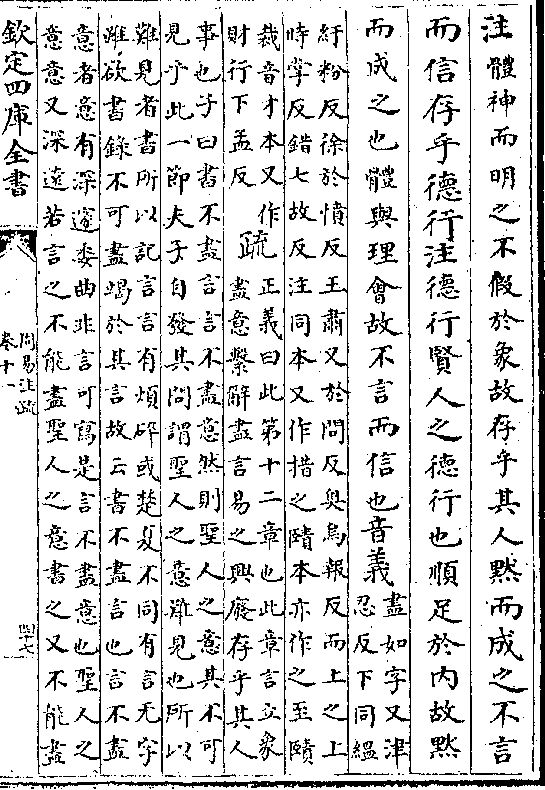 注體神而明之不假於象故存乎其人黙而成之不言
而信存乎德行注德行賢人之德行也順足於内故黙
而成之也體與理會故不言而信也音義盡如字又津
忍反下同緼
紆粉反徐於憤反王肅又於問反奥烏報反而上之上
時掌反錯七故反注同本又作措之賾本亦作之至賾
裁音才本又作
財行下孟反
疏正義曰此第十二章也此章言立象
盡意繫辭盡言易之興廢存乎其人
事也子曰書不盡言言不盡意然則聖人之意其不可
見乎此一節夫子自發其問謂聖人之意難見也所以
難見者書所以記言言有煩碎或楚夏不同有言无字
雖欲書錄不可盡竭於其言故云書不盡言也言不盡
意者意有深邃委曲非言可寫是言不盡意也聖人之
意意又深遠若言之不能盡聖人之意書之又不能盡
欽定四庫全書
周易注疏
卷十一
四十七